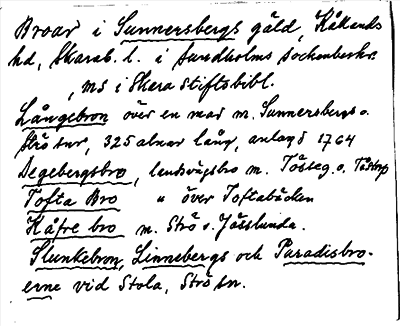 Broar i Sunnersbergs gäld, Kållands
hd, Skarab. l. i Sundholms sockenbeskr.
, ms i Skara stiftsbibl.
Långebron över en mad m. Sunnersbergs o.
Strö snr, 325 alnar lång, anlagd 1764
Degebergsbro, landsvägsbro m. Tösseg. o. Tåstorp
Tofta Bro " över Toftabäcken
Kåfre bro m. Strö o. Jösslunda.
Slunkebron, Linnebergs och Paradisbro-
erne vid Stola, Strö sn.